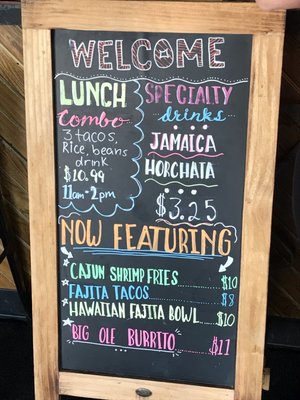 WELCOME
LUNCH
Combo
3 tacos,
Rice, beans
drink
$10.99
11am-2pm
SPECIALTY
drinks
JAMAICA
HORCHATA
$3.25
NOW FEATURING
CAJUN SHRIMP FRIES $10
FAJITA TACOS $8
HAWAIIAN FAJITA BOWL $10
BIG OLE BURRITO $11